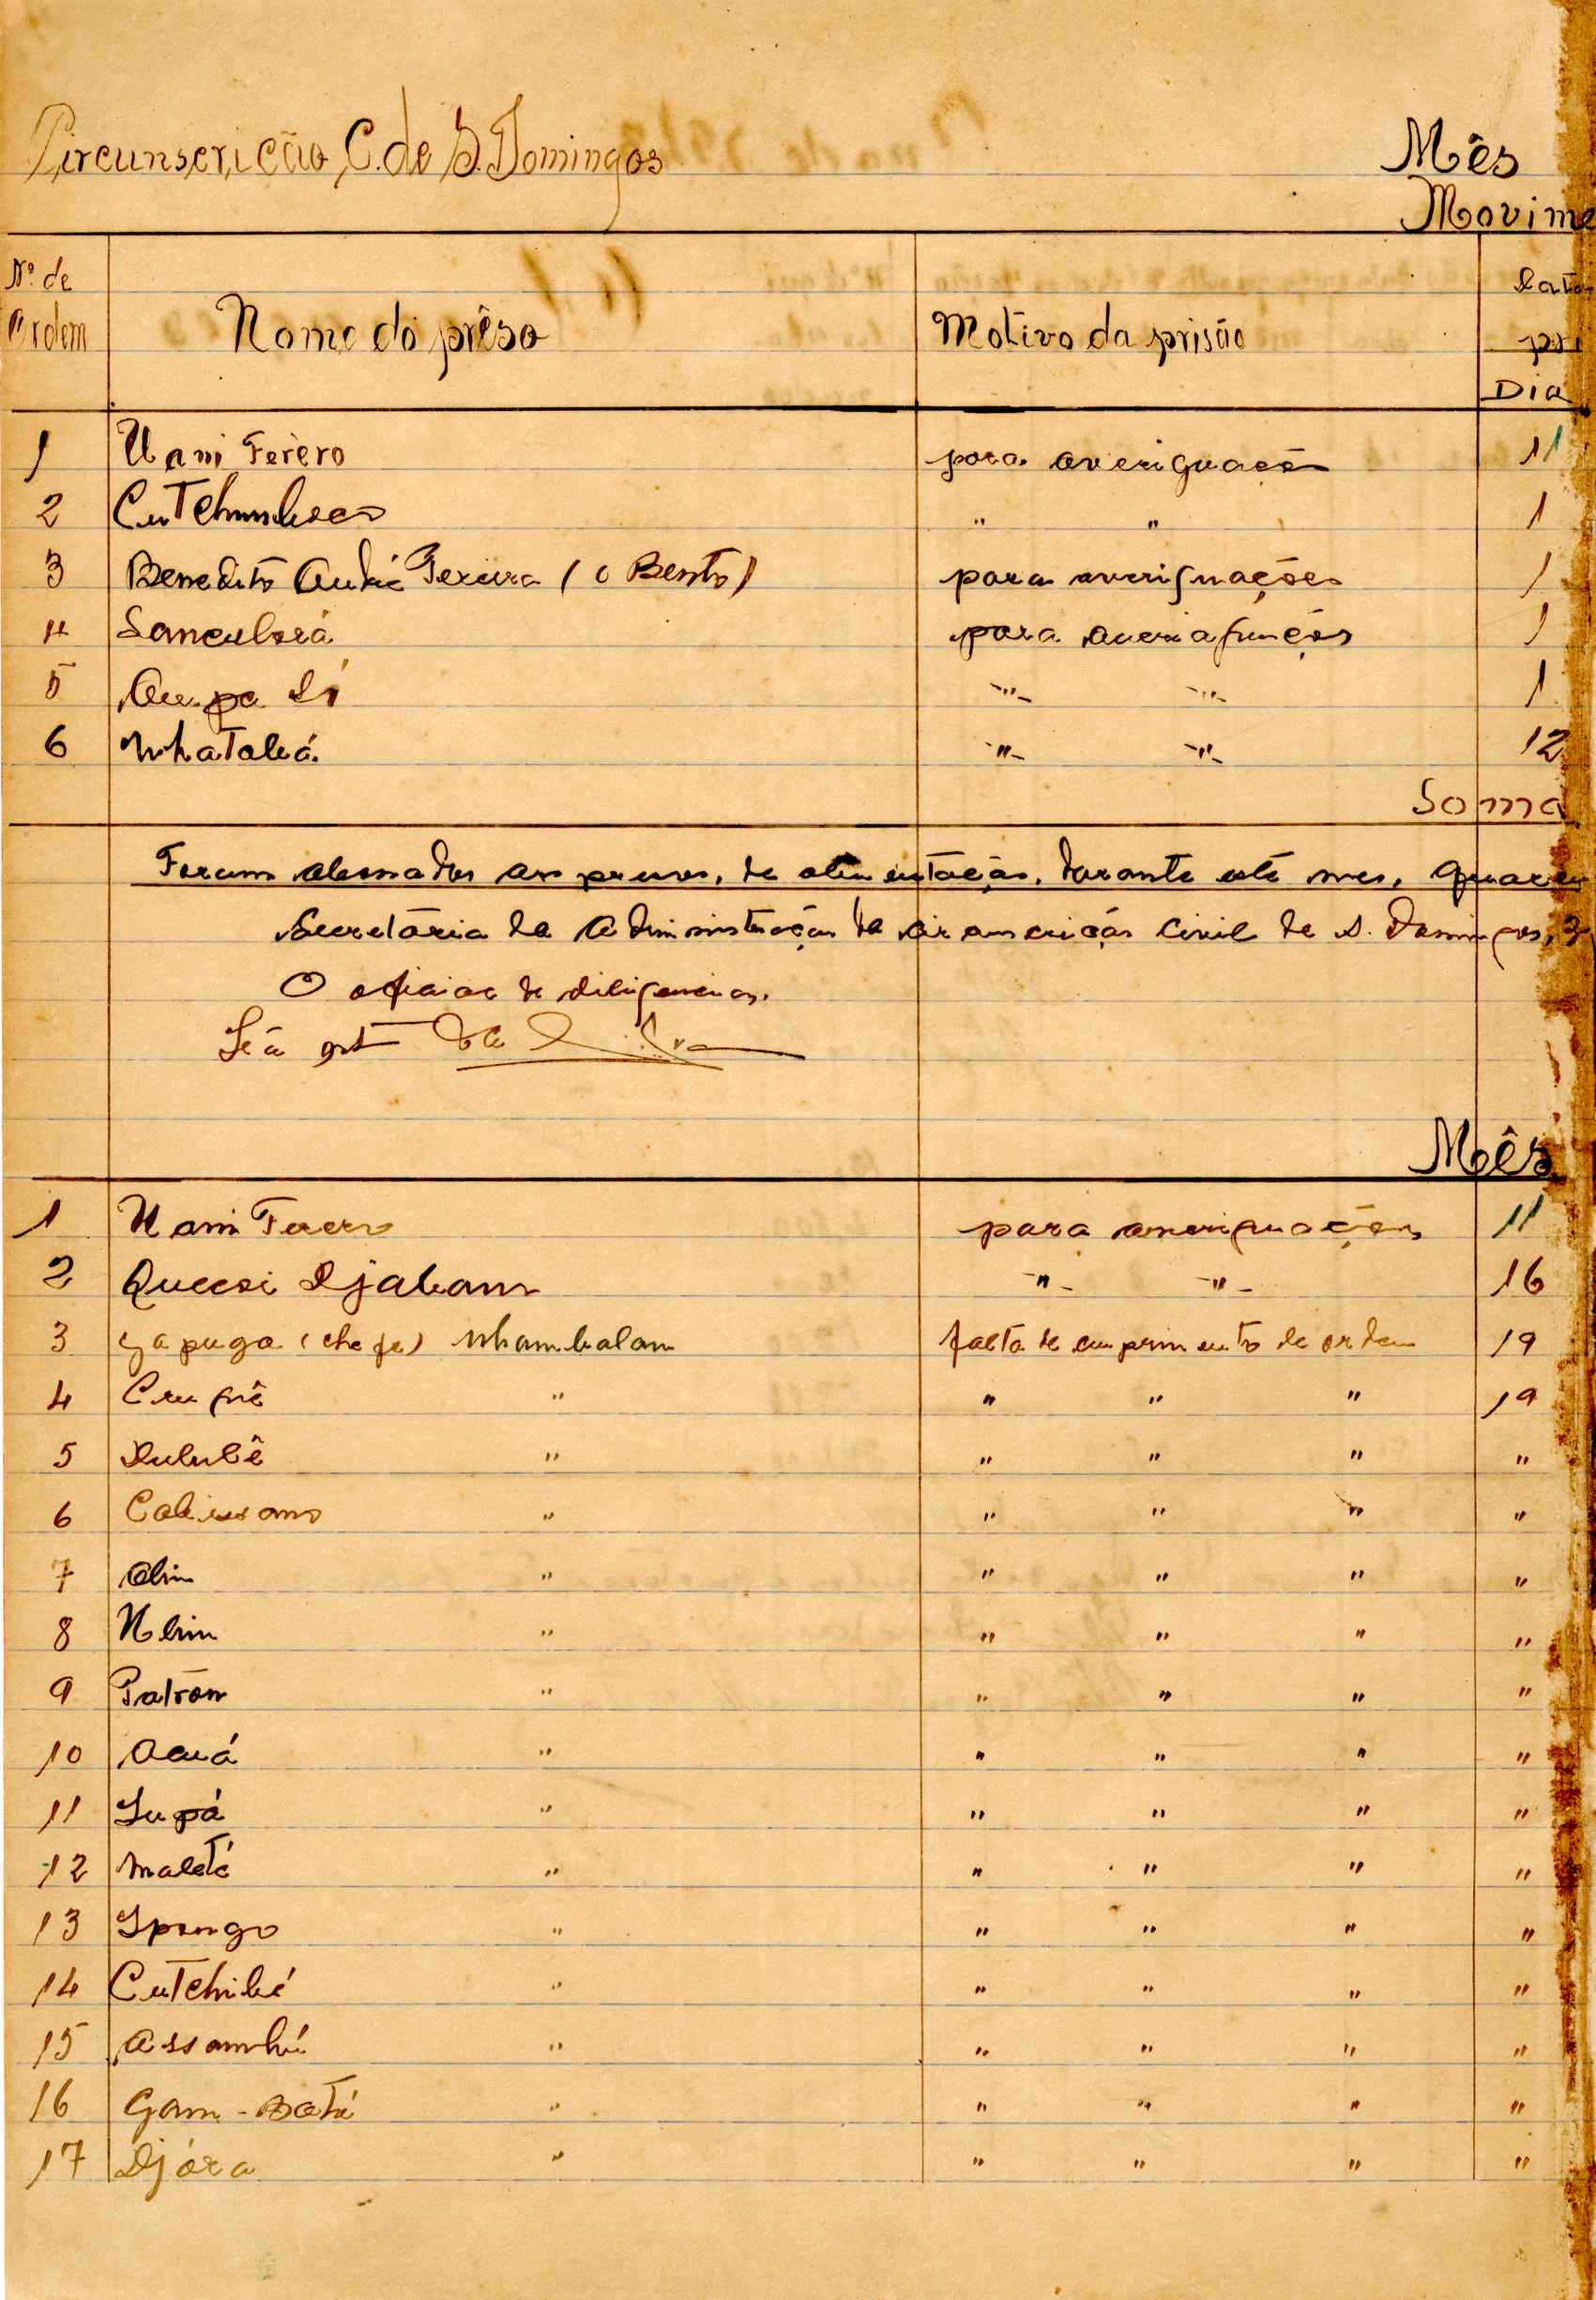 Circunscrição C. de S. Domingos Mês
Movime
Nº de Ordem Nome do prêso Motivo da prisão Data pri
Dia
1 Uani Ferero para averiguação 11
2 " " 1
3 Benedito André Pereira (o Bento) para averiguações 1
4 Sanculorá para 1
5 -"- -"- 1
6 Nhatabá. -"- -"- 12
Soma
Foram abonados aos presos, de alimentação, durante este mes,
Secretaria da Administração da Circunscrição Civil de S. Domingos, 3
O oficial de diligencias.
da Silva
Mês
1 Uani Ferero para averiguações 11
2 Quecsi Djabam "- -"- 16
3 Yapuga (chefe) Nhambalam falta de cumprimento de ordem 19
4 " " " " 19
5 Dulubê " " " " "
6 " " " " "
7 " " " " "
8 " " " " "
9 Patron " " " " "
10 Acuá " " " " "
11 Jupá " " " " "
12 Maleté " " " " "
13 Ipongo " " " " "
14 Cutchibé " " " " "
15 " " " " "
16 Gam-Baté " " " " "
17 Djóra " " " " "